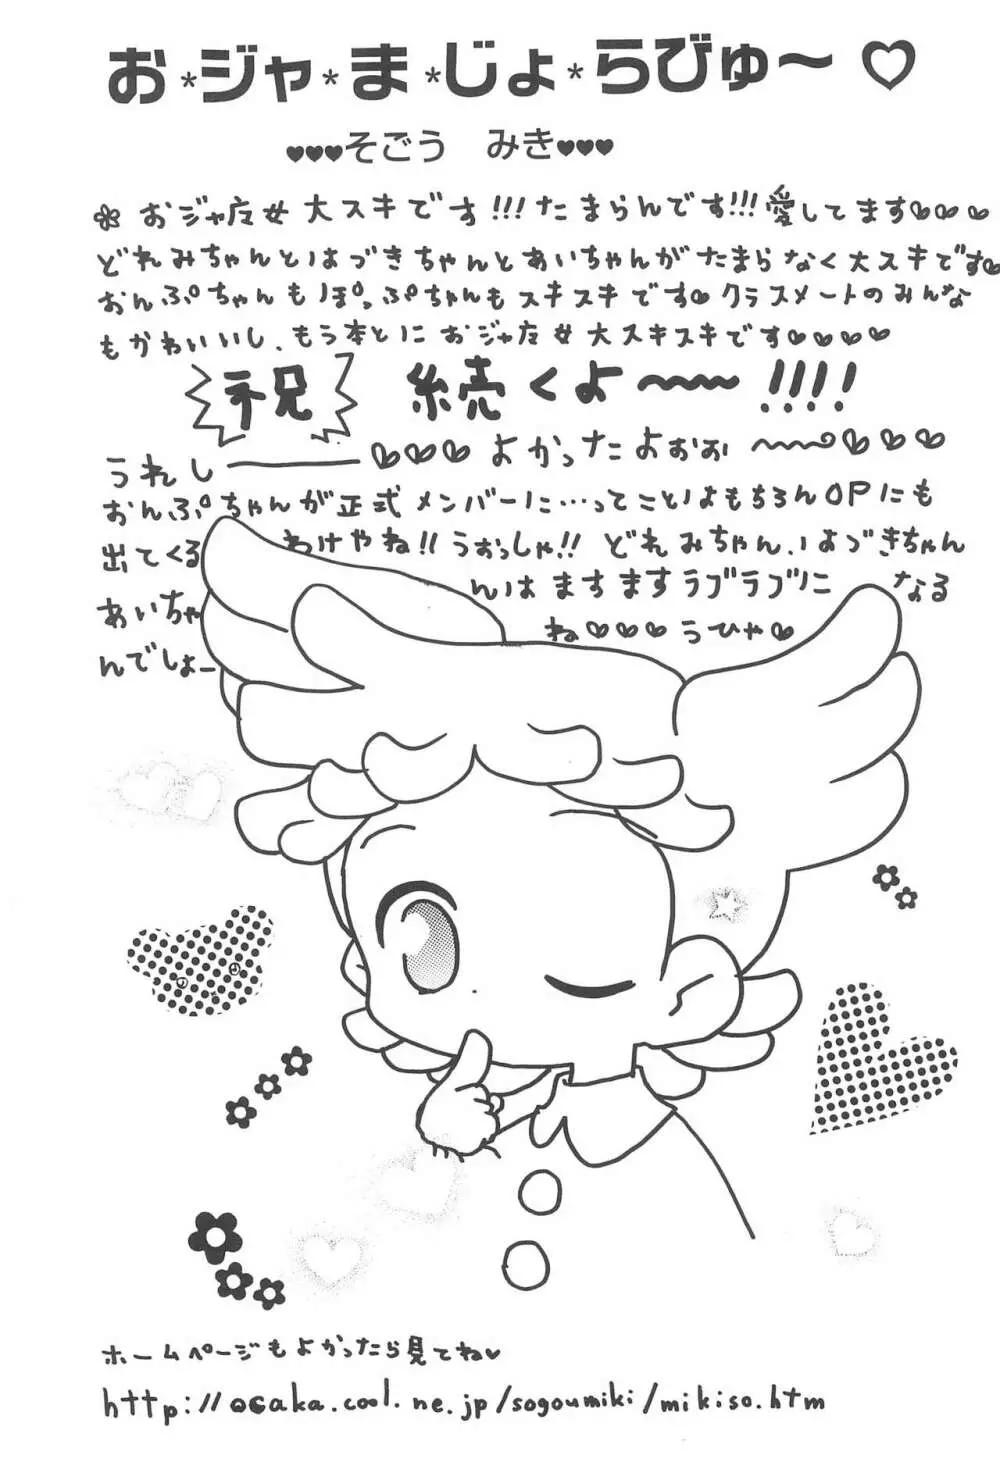 お*ジャ*ま*じょ*らびゅ〜♡
♥♥♥そごう みき♥♥♥
おジャ魔女大スキです!!!たまらんです!!!愛してます♡♡♡
どれみちゃんとはづきちゃんとあいちゃんがたまらなく大スキです♡
おんぷちゃんもぽっぷちゃんもスキスキです♡クラスメートのみんな
もかわいいし、もう本とにおジャ魔女大スキスキです♡♡♡♡
祝 続くよ〜〜〜!!!!
うれしー♡♡♡よかったよぉぉ〜〜♡♡♡
おんぷちゃんが正式メンバーに…ってことはもちろんOPにも
出てくるわけやね!!うおっしゃ!!どれみちゃん、はづきちゃん
あいちゃんはますますラブラブになる
んでしょーね♡♡♡うひゃ♡
ホームページもよかったら見てね♡
http://osaka.cool.ne.jp/sogoumiki/mikiso.htm